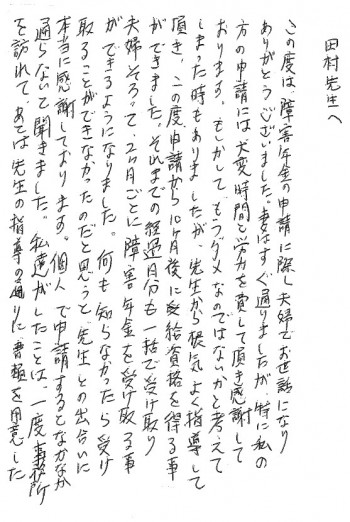 田村先生へ
この度は、障害年金の申請に際し夫婦でお世話になり
ありがとうございました。妻はすぐ通りましたが、特に私の
方の申請には大変時間と労力を費して頂き感謝して
おります。もしかして、もうダメなのではないかと考えて
しまった時もありましたが、先生から根気よく指導して
頂き、この度申請から10ヶ月後に受給資格を得る事
ができました。それまでの経過月分も一括で受け取り
夫婦そろって、2ヶ月ごとに障害年金を受け取る事
ができるようになりました。何も知らなかったら受け
取ることができなかったのだと思うと、先生との出合いに
本当に感謝しております。個人で申請するとなかなか
通らないと聞きました。私達がしたことは、一度事務所
を訪れて、あとは先生の指導の通りに書類を用意した